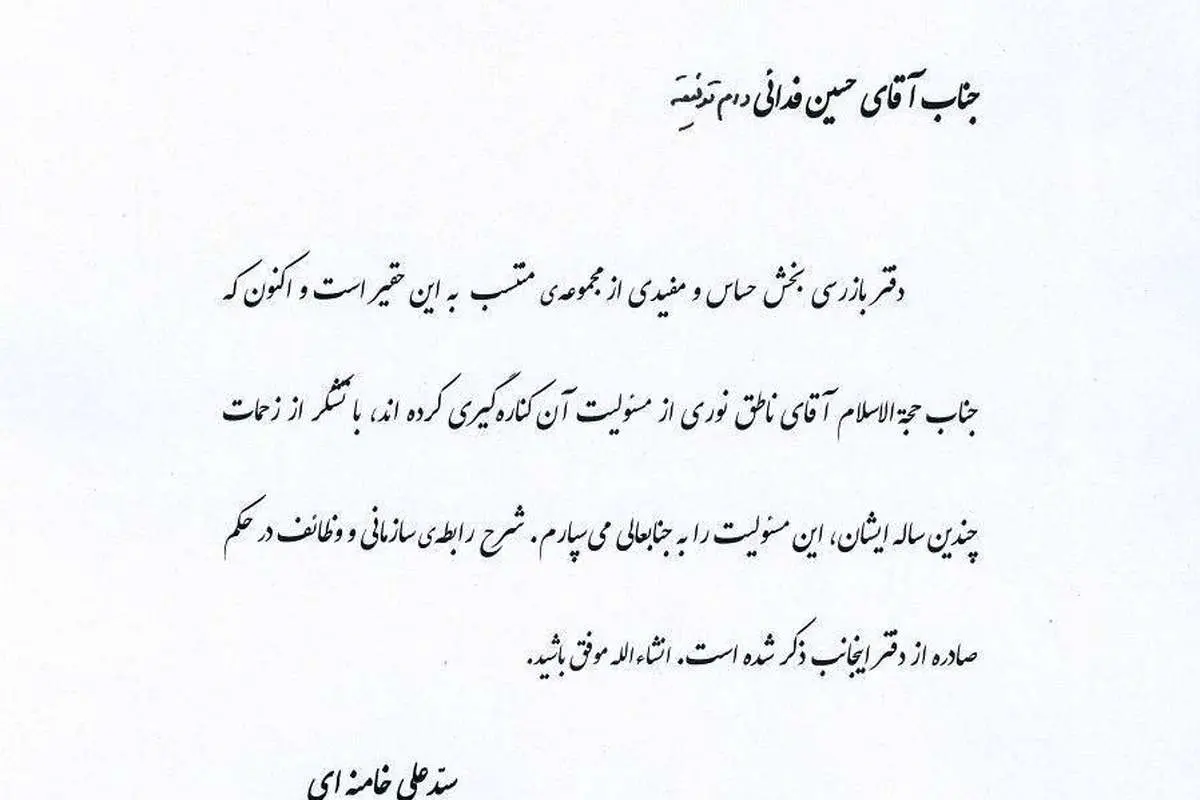 جناب آقای حسین فدائی دام توفیقه
دفتر بازرسی بخش حساس و مفیدی از مجموعه‌ی منتسب به این حقیر است و اکنون که
جناب حجة الاسلام آقای ناطق نوری از مسئولیت آن کناره گیری کرده اند، با تشکر از زحمات
چندین ساله ایشان، این مسئولیت را به جنابعالی می‌سپارم. شرح رابطه‌ی سازمانی و وظائف در حکم
صادره از دفتر اینجانب ذکر شده است. انشاءالله موفق باشید.
سیّد علی خامنه ای